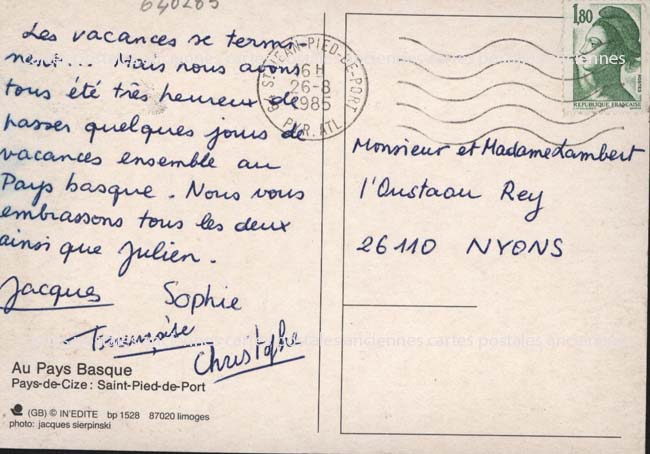 640285
Les vacances se termi-
nent... Mais nous avons
tous été très heureux de
passer quelques jours de
vacances ensemble au
Pays basque. Nous vous
embrassons tous les deux
ainsi que Julien.
Jacques Sophie
Françoise
Christophe
Au Pays Basque
Pays-de-Cize : Saint-Pied-de-Port
(GB) © IN'EDITE bp 1528 87020 limoges
photo: jacques sierpinski
64 ST-JEAN-PIED-DE-PORT
16H
26-8
1985
PYR. ATL.
1,80
POSTES
REPUBLIQUE FRANÇAISE
Monsieur et Madame Lambert
l'Oustaou Rey
26110 NYONS
cartes postales anciennes